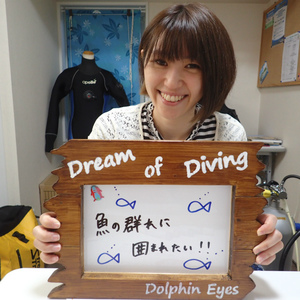 Dream of Diving
魚の群れに
囲まれたい!!
Dolphin Eyes